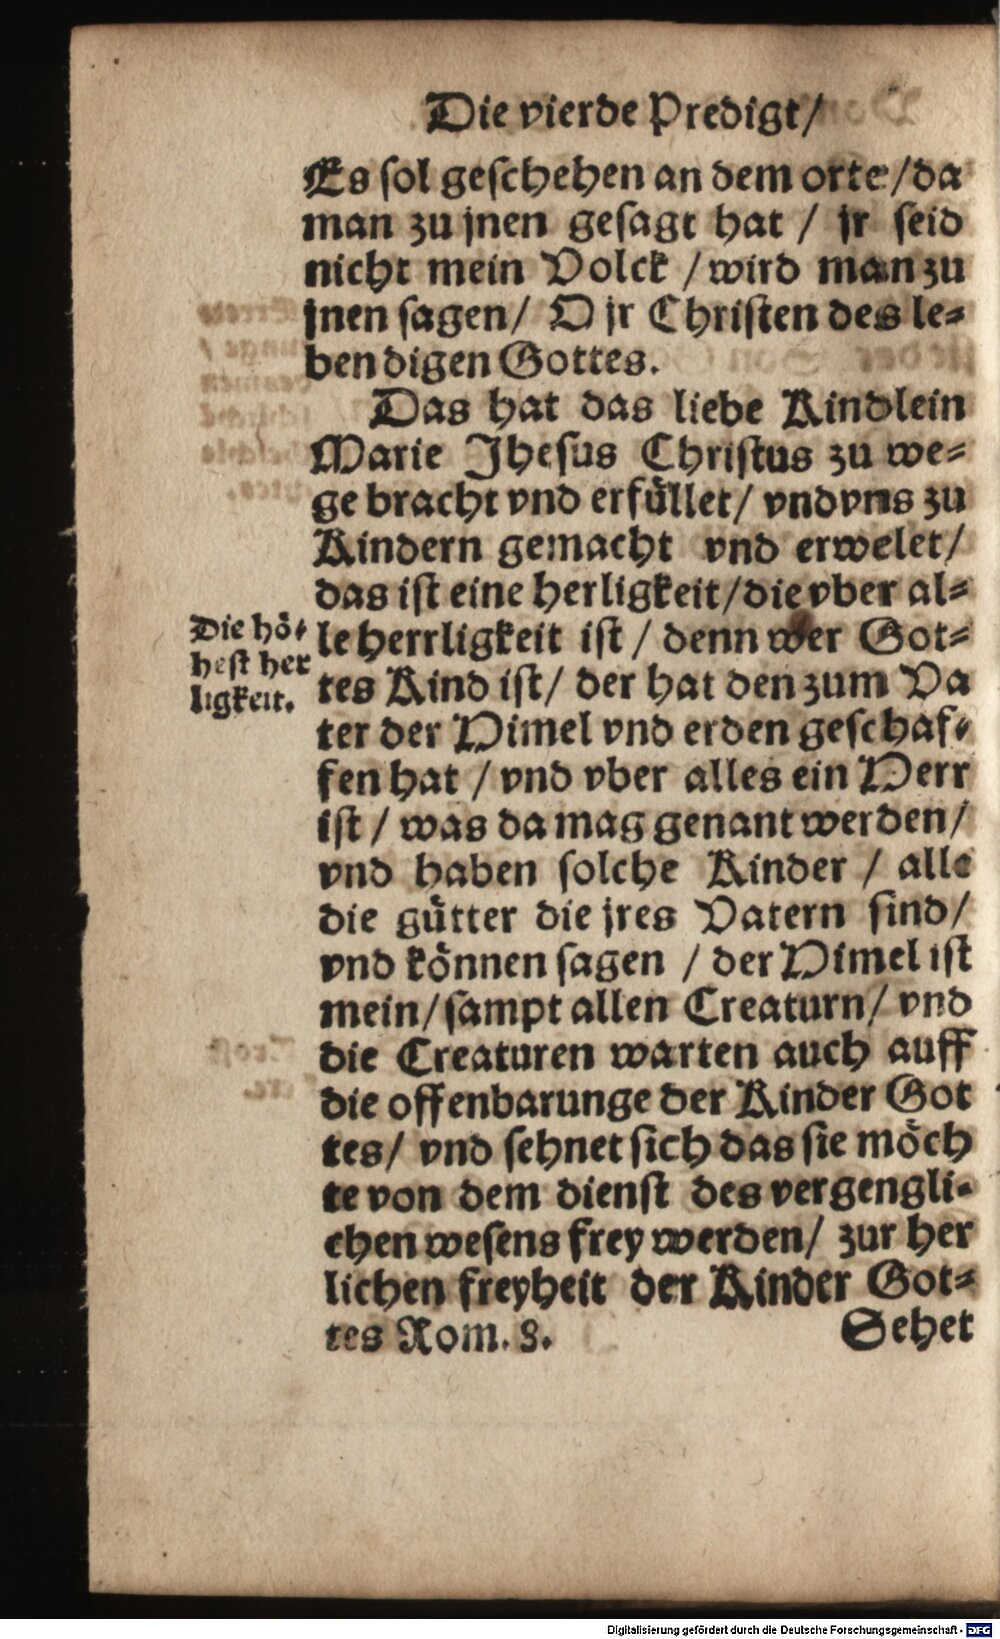 Die vierde Predigt/
Es sol geschehen an dem orte/da
man zu jnen gesagt hat / jr seid
nicht mein Volck /wird man zu
jnen sagen/ O jr Christen des le-
bendigen Gottes.
Das hat das liebe Kindlein
Marie Jhesus Christus zu we-
ge bracht vnd erfüllet/ vnd vns zu
Kindern gemacht vnd erwelet/
das ist eine herligkeit/die vber al-
le herrligkeit ist / denn wer Got-
tes Kind ist/ der hat den zum Va
ter der Himel vnd erden geschaf-
fen hat / vnd vber alles ein Herr
ist / was da mag genant werden/
vnd haben solche Kinder / alle
die gütter die jres Vatern sind/
vnd können sagen / der Himel ist
mein/sampt allen Creaturn/ vnd
die Creaturen warten auch auff
die offenbarunge der Kinder Got
tes/ vnd sehnet sich das sie möch
te von dem dienst des vergengli-
chen wesens frey werden/ zur her
lichen freyheit der Kinder Got-
tes Rom. 8.
Sehet
Die hö-
hest her
ligkeit.
Digitalisierung gefördert durch die Deutsche Forschungsgemeinschaft - DFG